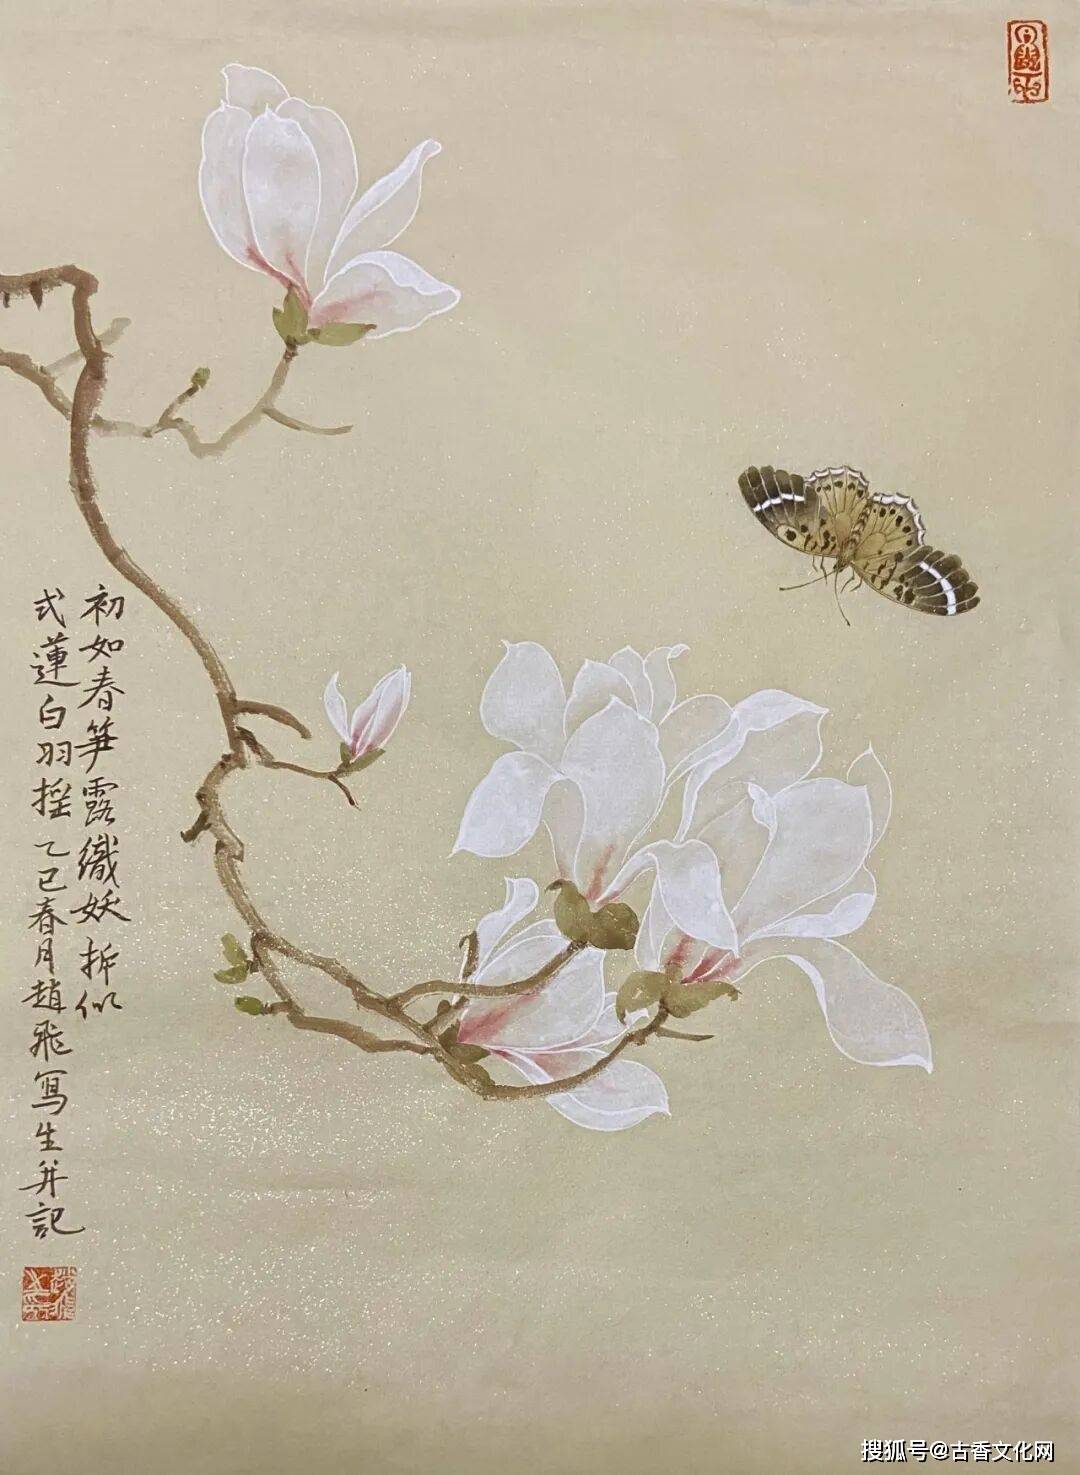 初如春笋露織妖拆似
式蓮白羽摇 乙巳春月趙飛寫生并記
搜狐号@古香文化网